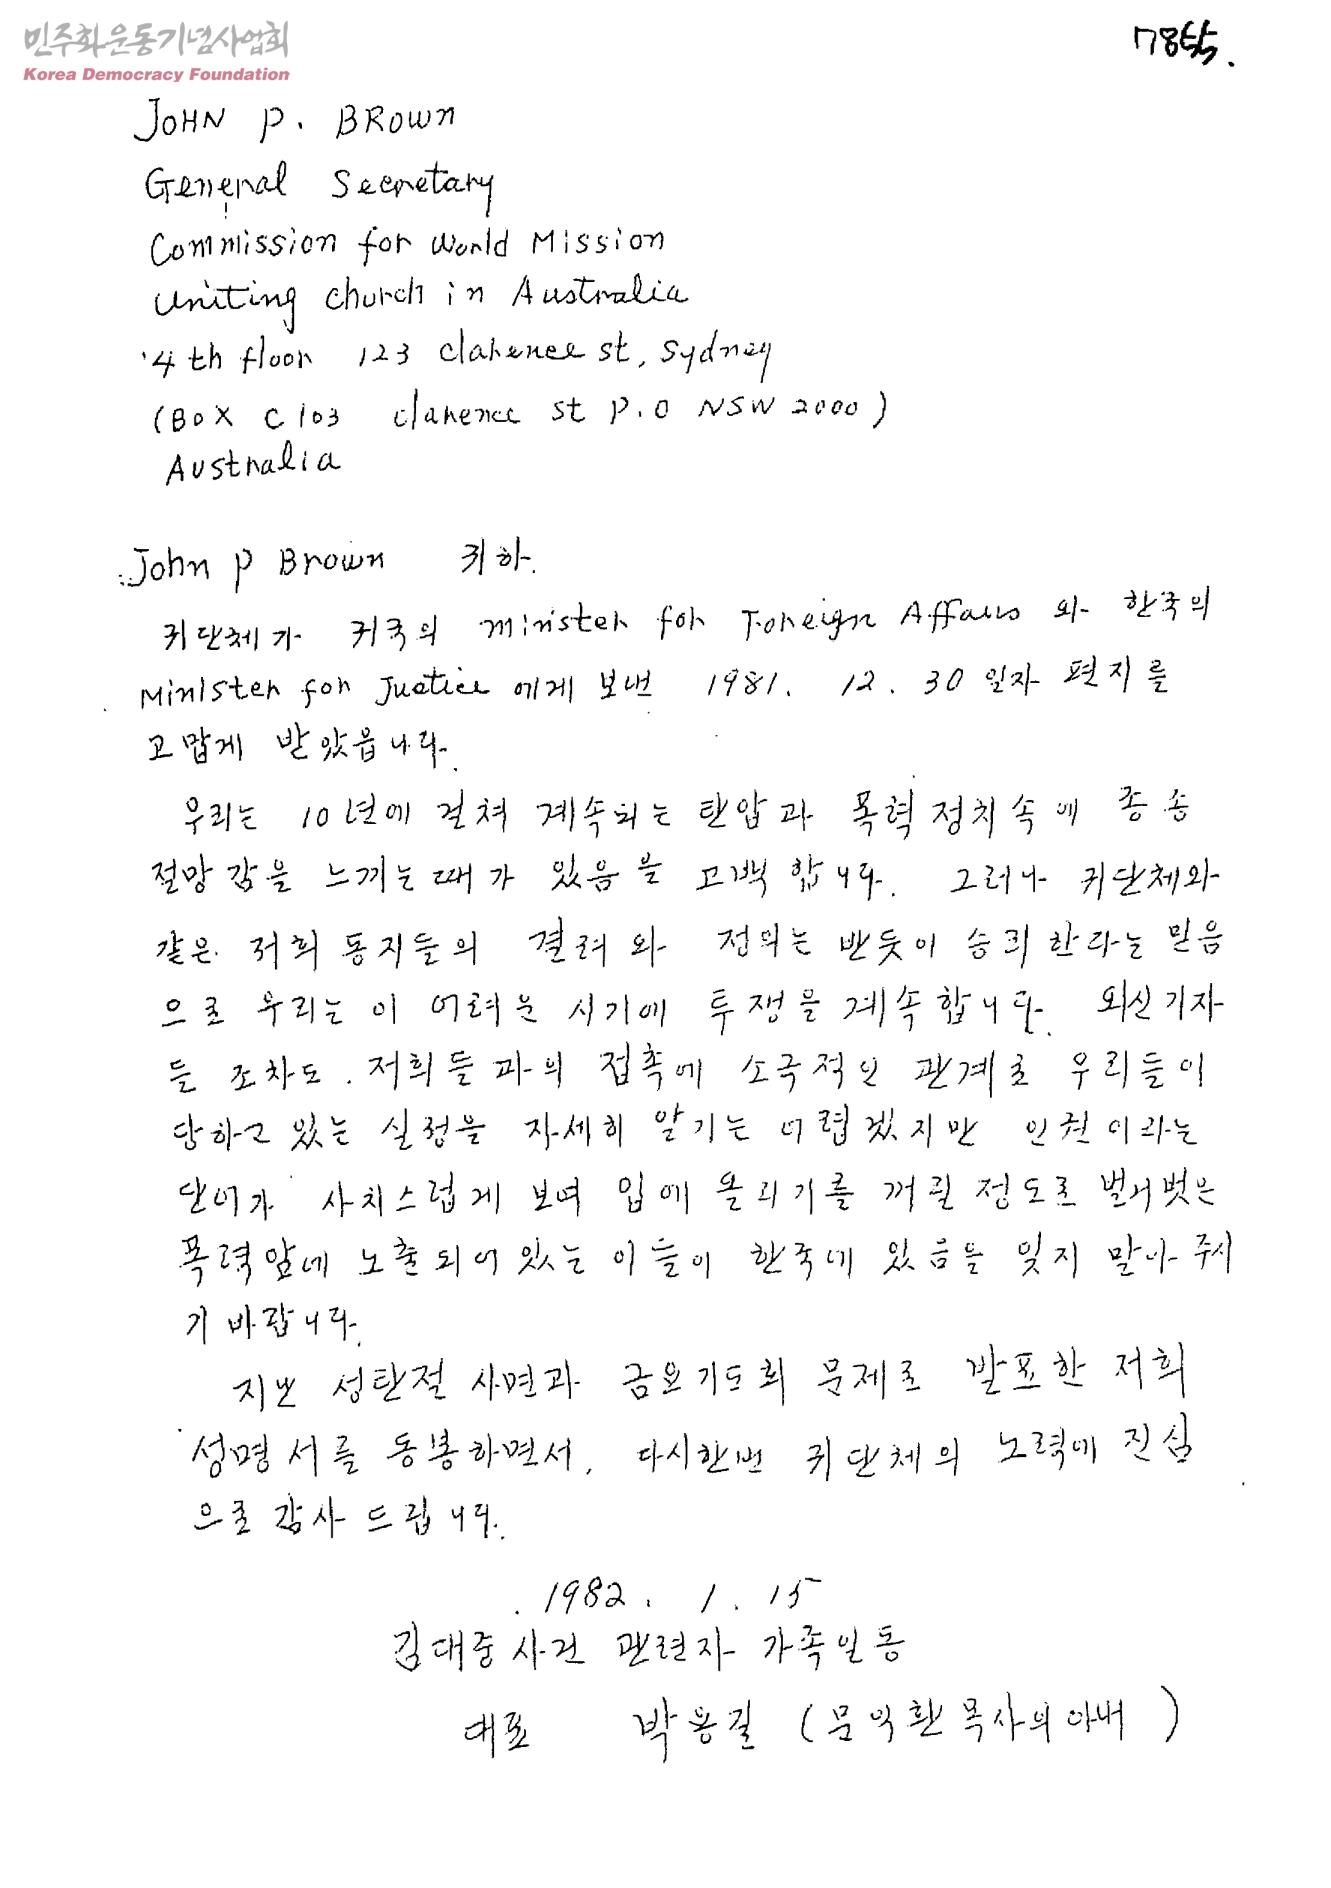 민주화운동기념사업회
Korea Democracy Foundation
JOHN P. BROWN
General Secretary
Commission for World Mission
Uniting church in Australia
4th floor 123 clarence st, Sydney
(BOX C103 clarence st P.O NSW 2000)
Australia
John P Brown 귀하.
귀단체가 귀국의 minister for Foreign Affairs 와 한국의
Minister for Justice 에게 보낸 1981. 12. 30 일자 편지를
고맙게 받았읍니다.
우리는 10년에 걸쳐 계속되는 탄압과 폭력정치속에 종종
절망감을 느끼는때가 있음을 고백합니다. 그러나 귀단체와
같은 저희 동지들의 격려와 정의는 반듯이 승리한다는 믿음
으로 우리는 이 어려운 시기에 투쟁을 계속합니다. 외신기자
들 조차도 저희들과의 접촉에 소극적인 관계로 우리들이
당하고 있는 실정을 자세히 알기는 어렵겠지만 인권이라는
단어가 사치스럽게 보여 입에 올리기를 꺼릴 정도로 벌거벗은
폭력앞에 노출되어 있는 이들이 한국에 있음을 잊지 말아 주시
기 바랍니다.
지난 성탄절 사면과 금요기도회 문제로 발표한 저희
성명서를 동봉하면서, 다시한번 귀단체의 노력에 진심
으로 감사 드립니다.
1982. 1. 15
김대중사건 관련자 가족일동
대표 박용길 (문익환목사의아내)